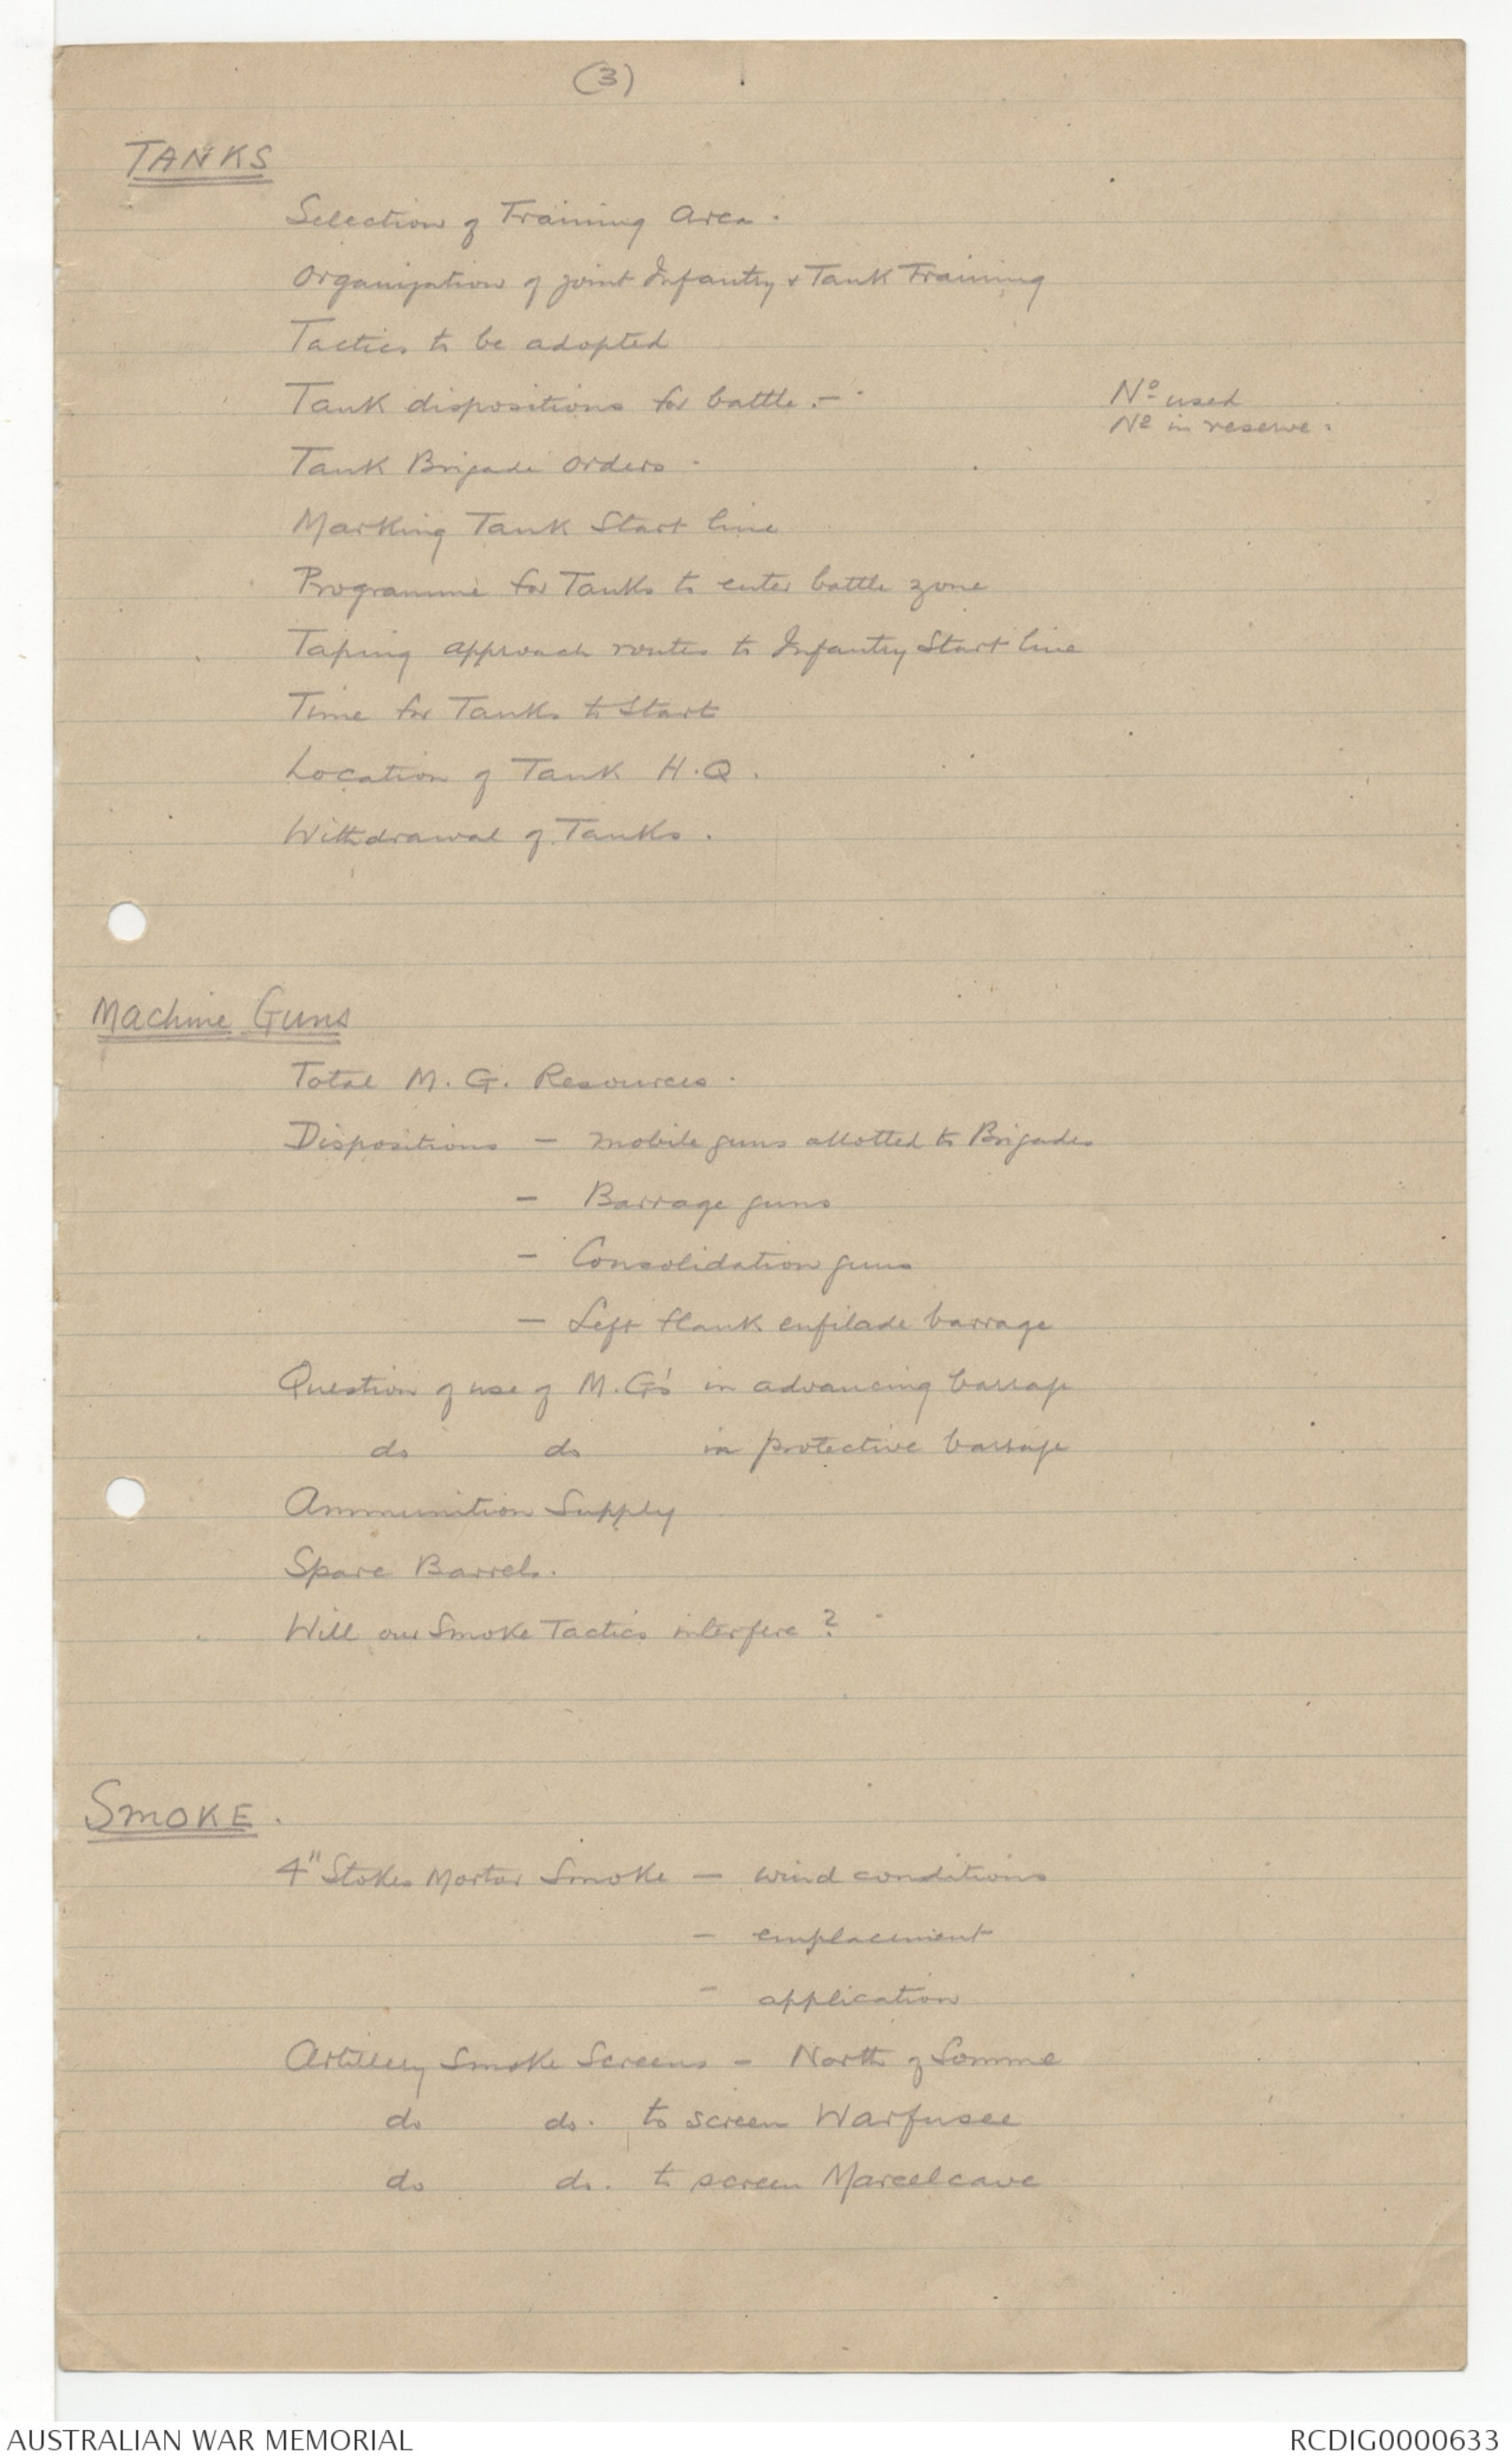 (3)
TANKS
Selection of Training Area.
Organization of joint Infantry & Tank Training
Tactics to be adopted
Tank dispositions for battle :- Nº used
Nº in reserve.
Tank Brigade Orders.
Marking Tank Start line
Programme for Tanks to enter battle zone
Taping approach routes to Infantry Start line
Time for Tanks to Start
Location of Tank H.Q.
Withdrawal of Tanks.
Machine Guns
Total M.G. Resources.
Dispositions — mobile guns allotted to Brigades
— Barrage guns
— Consolidation guns
— Left flank enfilade barrage
Question of use of M.G's in advancing barrage
do do in protective barrage
Ammunition Supply
Spare Barrels.
Will our Smoke Tactics interfere?
SMOKE.
4" Stokes Mortar Smoke — wind conditions
— emplacement
— application
Artillery Smoke Screens — North of Somme
do do. to screen Warfusee
do do. to screen Marcelcave
AUSTRALIAN WAR MEMORIAL RCDIG0000633